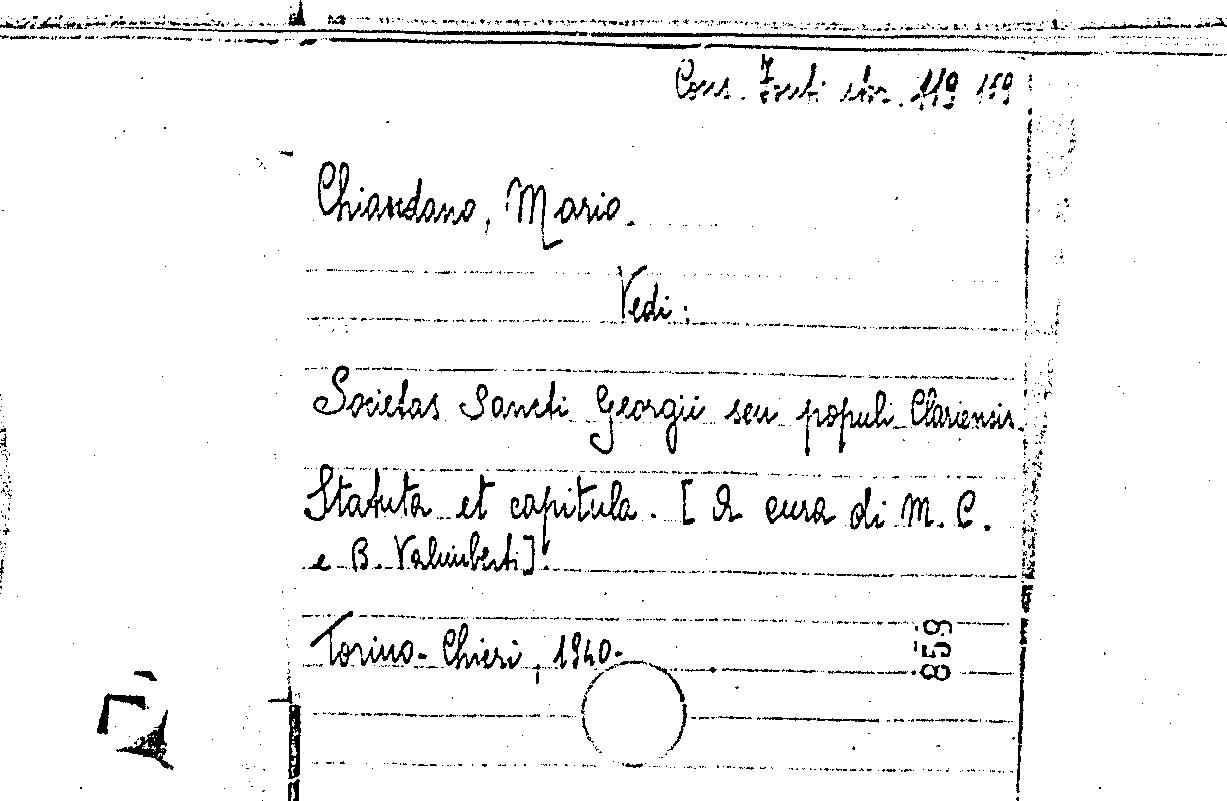 Cons. Fonti stor. 119 159
Chiaudano, Mario.
Vedi:
Societas Sancti Georgii seu populi Clariensis.
Statuta et capitula. [A cura di M. C.
e B. Valimberti].
Torino-Chieri, 1940-
859